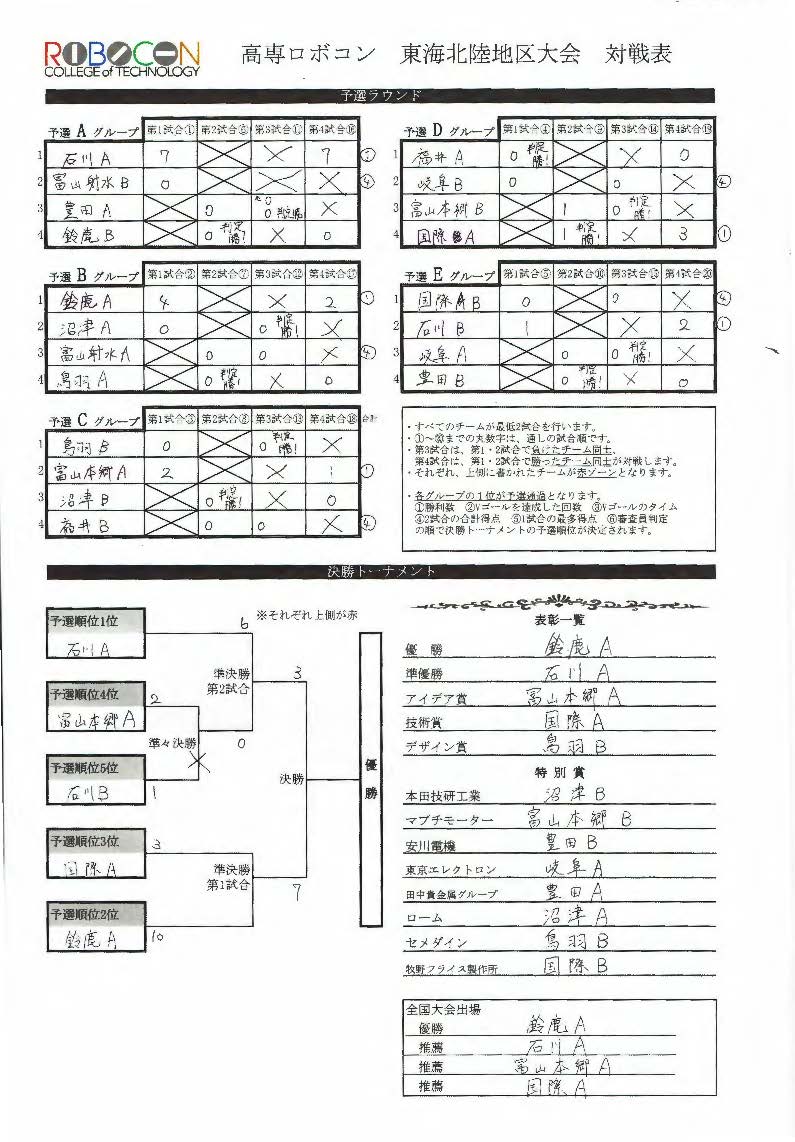 ROBOCON
COLLEGE of TECHNOLOGY
高専ロボコン 東海北陸地区大会 対戦表
予選ラウンド
予選 A グループ 第1試合① 第2試合⑥ 第3試合⑪ 第4試合⑯
1 石川 A 7 7
2 富山射水 B 0 ④
3 豊田 A 0 0 判定勝!
4 鈴鹿 B 0 判定勝! 0
予選 B グループ 第1試合② 第2試合⑦ 第3試合⑫ 第4試合⑰
1 鈴鹿 A 4 2 ①
2 沼津 A 0 0 判定勝!
3 富山射水 A 0 0 ④
4 鳥羽 A 0 判定勝! 0
予選 C グループ 第1試合③ 第2試合⑧ 第3試合⑬ 第4試合⑱ 合計
1 鳥羽 B 0 0 判定勝!
2 富山本郷 A 2 1 ①
3 沼津 B 0 判定勝! 0
4 福井 B 0 0 ④
予選 D グループ 第1試合④ 第2試合⑨ 第3試合⑭ 第4試合⑲
1 福井 A 0 判定勝! 0
2 岐阜 B 0 0 ④
3 富山本郷 B 1 0 判定勝!
4 国際 A 1 判定勝! 3 ①
予選 E グループ 第1試合⑤ 第2試合⑩ 第3試合⑮ 第4試合⑳
1 国際 B 0 0 ④
2 石川 B 1 2 ①
3 岐阜 A 0 0 判定勝!
4 豊田 B 0 判定勝! 0
・すべてのチームが最低2試合を行います。
・①~⑳までの丸数字は、通しの試合順です。
・第3試合は、第1・2試合で負けたチーム同士、
第4試合は、第1・2試合で勝ったチーム同士が対戦します。
・それぞれ、上側に書かれたチームが赤ゾーンとなります。
・各グループの1位が予選通過となります。
①勝利数 ②Vゴールを達成した回数 ③Vゴールのタイム
④2試合の合計得点 ⑤1試合の最多得点 ⑥審査員判定
の順で決勝トーナメントの予選順位が決定されます。
決勝トーナメント
※それぞれ上側が赤
予選順位1位
石川 A
6
準決勝
第2試合
3
予選順位4位
富山本郷 A
2
準々決勝
0
予選順位5位
石川 B
1
決勝
優勝
予選順位3位
国際 A
3
準決勝
第1試合
7
予選順位2位
鈴鹿 A
10
表彰一覧
優 勝 鈴鹿 A
準優勝 石川 A
アイデア賞 富山本郷 A
技術賞 国際 A
デザイン賞 鳥羽 B
特 別 賞
本田技研工業 沼津 B
マブチモーター 富山本郷 B
安川電機 豊田 B
東京エレクトロン 岐阜 A
田中貴金属グループ 豊田 A
ローム 沼津 A
セメダイン 鳥羽 B
牧野フライス製作所 国際 B
全国大会出場
優勝 鈴鹿 A
推薦 石川 A
推薦 富山本郷 A
推薦 国際 A